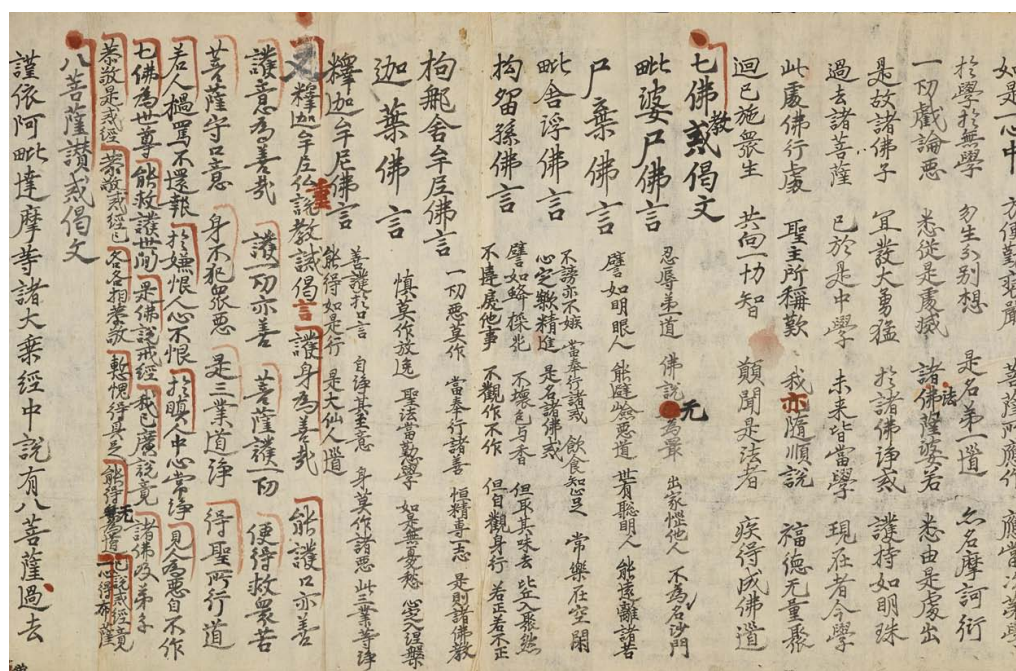 如是一心中 方便勤莊嚴 菩薩所應作 應當次第學
於學於無學 勿生分別想 是名第一道 亦名摩訶衍
一切戲論惡 悉從是處滅 諸佛法薩婆若 悉由是處出
是故諸佛子 宜發大勇猛 於諸佛淨戒 護持如明珠
過去諸菩薩 已於是中學 未来皆當學 現在者今學
此處佛行處 聖主所稱歎 我亦隨順說 福德无量聚
迴已施衆生 共向一切智 願聞是法者 疾得成佛道
七佛教戒偈文
毗婆尸佛言 忍辱第一道 佛說无為最 出家惱他人 不為名沙門
尸棄佛言 譬如明眼人 能避嶮惡道 世有聰明人 能遠離諸苦
毗舍浮佛言 不謗亦不嫉 當奉行諸戒 飲食知止足 常樂在空閑
心定樂精進 是名諸佛戒
拘留孫佛言 譬如蜂採花 不壞色与香 但取其味去 比丘入聚然
不違戾他事 不觀作不作 但自觀身行 若正若不正
拘那舍牟尼佛言 一切惡莫作 當奉行諸善 惟精專一志 是則諸佛教
迦葉佛言 慎莫作放逸 聖法當勤學 如是無憂愁 定入涅槃
釋迦牟尼佛言 善護於口言 自淨其志意 身莫作諸惡 此三業等淨
能得如是行 是大仙人道
又釋迦牟尼佛說教誡偈言 護身為善哉 能護口亦善
護意為善哉 護一切亦善 菩薩護一切 便得救衆苦
菩薩守口意 身不犯衆惡 是三業道淨 得聖所行道
若人撾罵不還報 於嫌恨人心不恨 於瞋人中心常淨 見人為惡自不作
七佛為世尊 能救護世間 是佛說戒經 我已廣說竟 諸佛及弟子
恭敬是戒經 恭敬戒經已 各各相恭敬 慙愧得具足 能得无為道 已說戒經竟
一心得布薩
八菩薩讚戒偈文
謹依阿毗達摩等諸大乘經中說有八菩薩過去